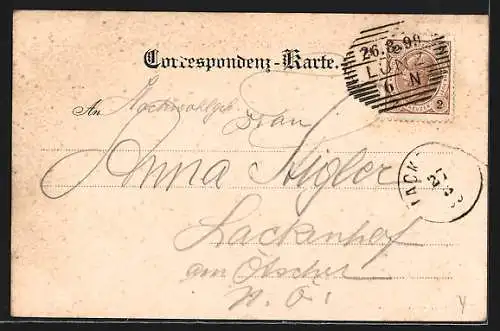 Correspondenz-Karte.
26.8.99
LUNZ
6 N
2
An Hochwohlgeb
Frau
Anna Kigler
Lackenhof
am Ötscher
N. Ö.
LACK
27
8